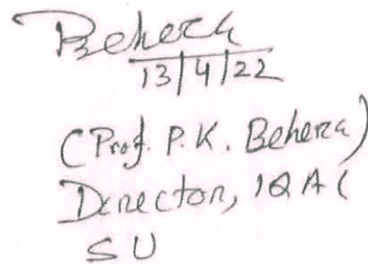 Behera
13/4/22
(Prof. P.K. Behera)
Director, IQAC
SU